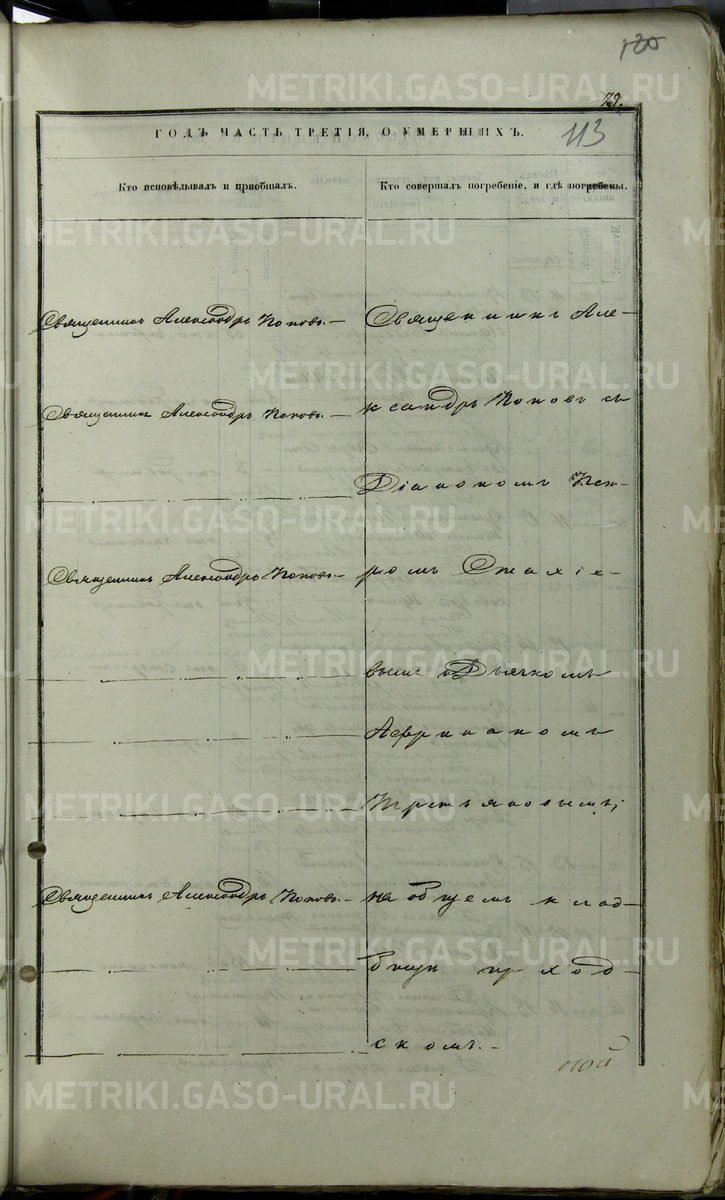 120
79.
ГОДЪ ЧАСТЬ ТРЕТІЯ, О УМЕРШИХЪ.
113
Кто исповѣдывалъ и пріобщалъ.
Кто совершалъ погребеніе, и гдѣ погребены.
Священникъ Александръ Поповъ.—
Священникъ Александръ Поповъ.—
Священникъ Александръ Поповъ.—
Священникъ Александръ Поповъ.—
Священникъ Але-
ксандръ Поповъ съ
Діакономъ
ромъ Стахіе-
вымъ и Дьячкомъ
Африканомъ
Третьяковымъ;
на общемъ клад-
бищи приход-
скомъ.—
METRIKI.GASO-URAL.RU